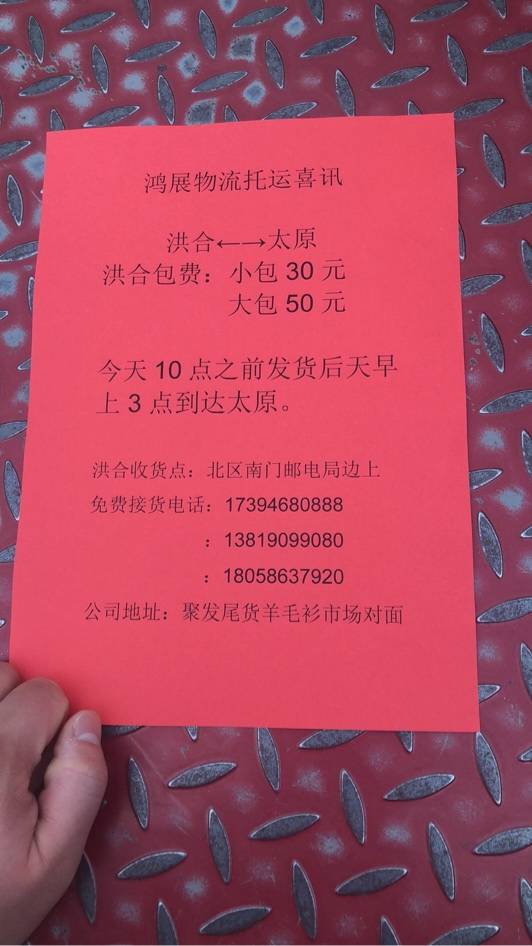 鸿展物流托运喜讯
洪合←→太原
洪合包费：小包 30 元
大包 50 元
今天 10 点之前发货后天早
上 3 点到达太原。
洪合收货点：北区南门邮电局边上
免费接货电话：17394680888
：13819099080
：18058637920
公司地址：聚发尾货羊毛衫市场对面